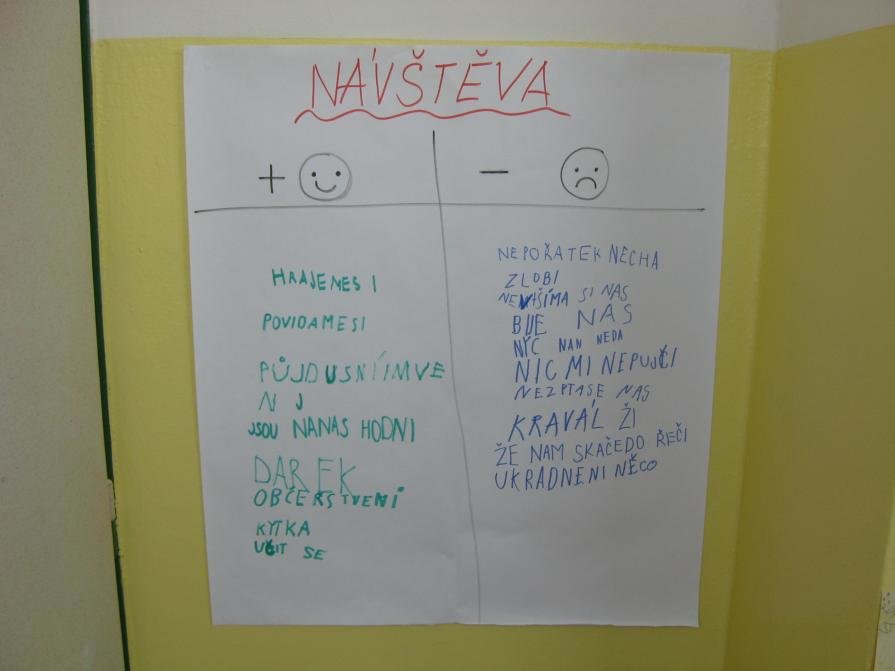 NÁVŠTĚVA
+
−
HRAJEMESI
POVIDAMESI
PŮJDUSNÍIMVE
N J
JSOU NANAS HODNI
DAREK
OBČERSTVENÍ
KYTKA
UČIT SE
NEPOŘATEK NECHA
ZLOBI
NEVŠÍMA SI NAS
BIJE NAS
NIC NAN NEDA
NIC MI NEPUJČI
NEZPTASE NAS
KRAVÁL ŽI
ŽE NAM SKAČEDO ŘEČI
UKRADNENI NĚCO